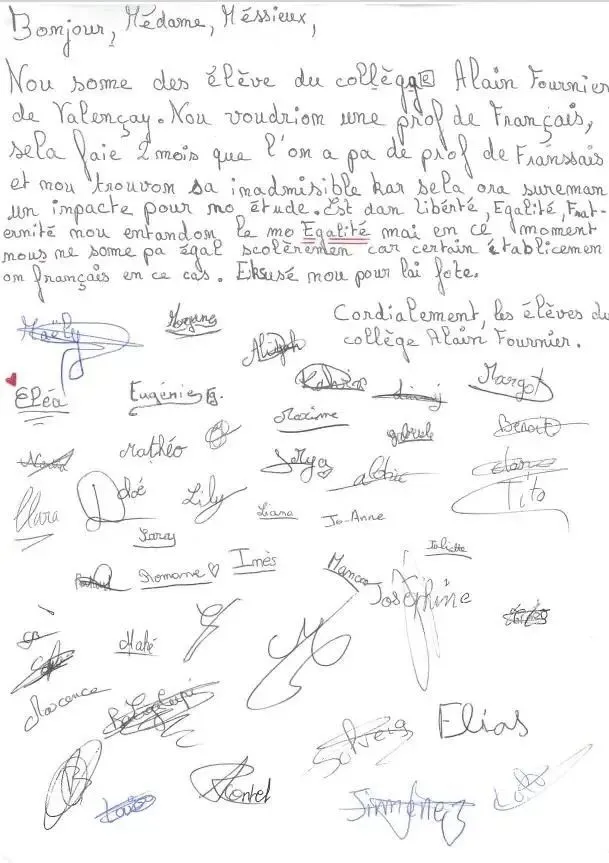 Bonjour, Médame, Méssieux,
Nou some des élève du collègge Alain Fournier
de Valençay. Nou voudrion une prof de Français,
sela faie 2 mois que l'on a pa de prof de Franssais
et nou trouvon sa inadmisible kar sela ora sureman
un impacte pour no étude. Est dan libérté, Egalité, Frat-
ernité nou entandon le mo Egalité mai en ce moment
nous ne some pa égal scolèremen car certain établicemen
on français en ce cas. Eksusé nou pour lai fote.
Cordialement, les élèves du
collège Alain Fournier.
Maëly
Morgane
Aliyah
Margot
Eléa
Eugénie B.
Maxime
Gabriele
Benoit
Mathéo
Clara
Zoé
Lily
Liana
Jo-Anne
Tito
Romane
Inès
Manon
Juliette
Joséphine
Mahé
Maxence
Solveig
Elias
Jimenez